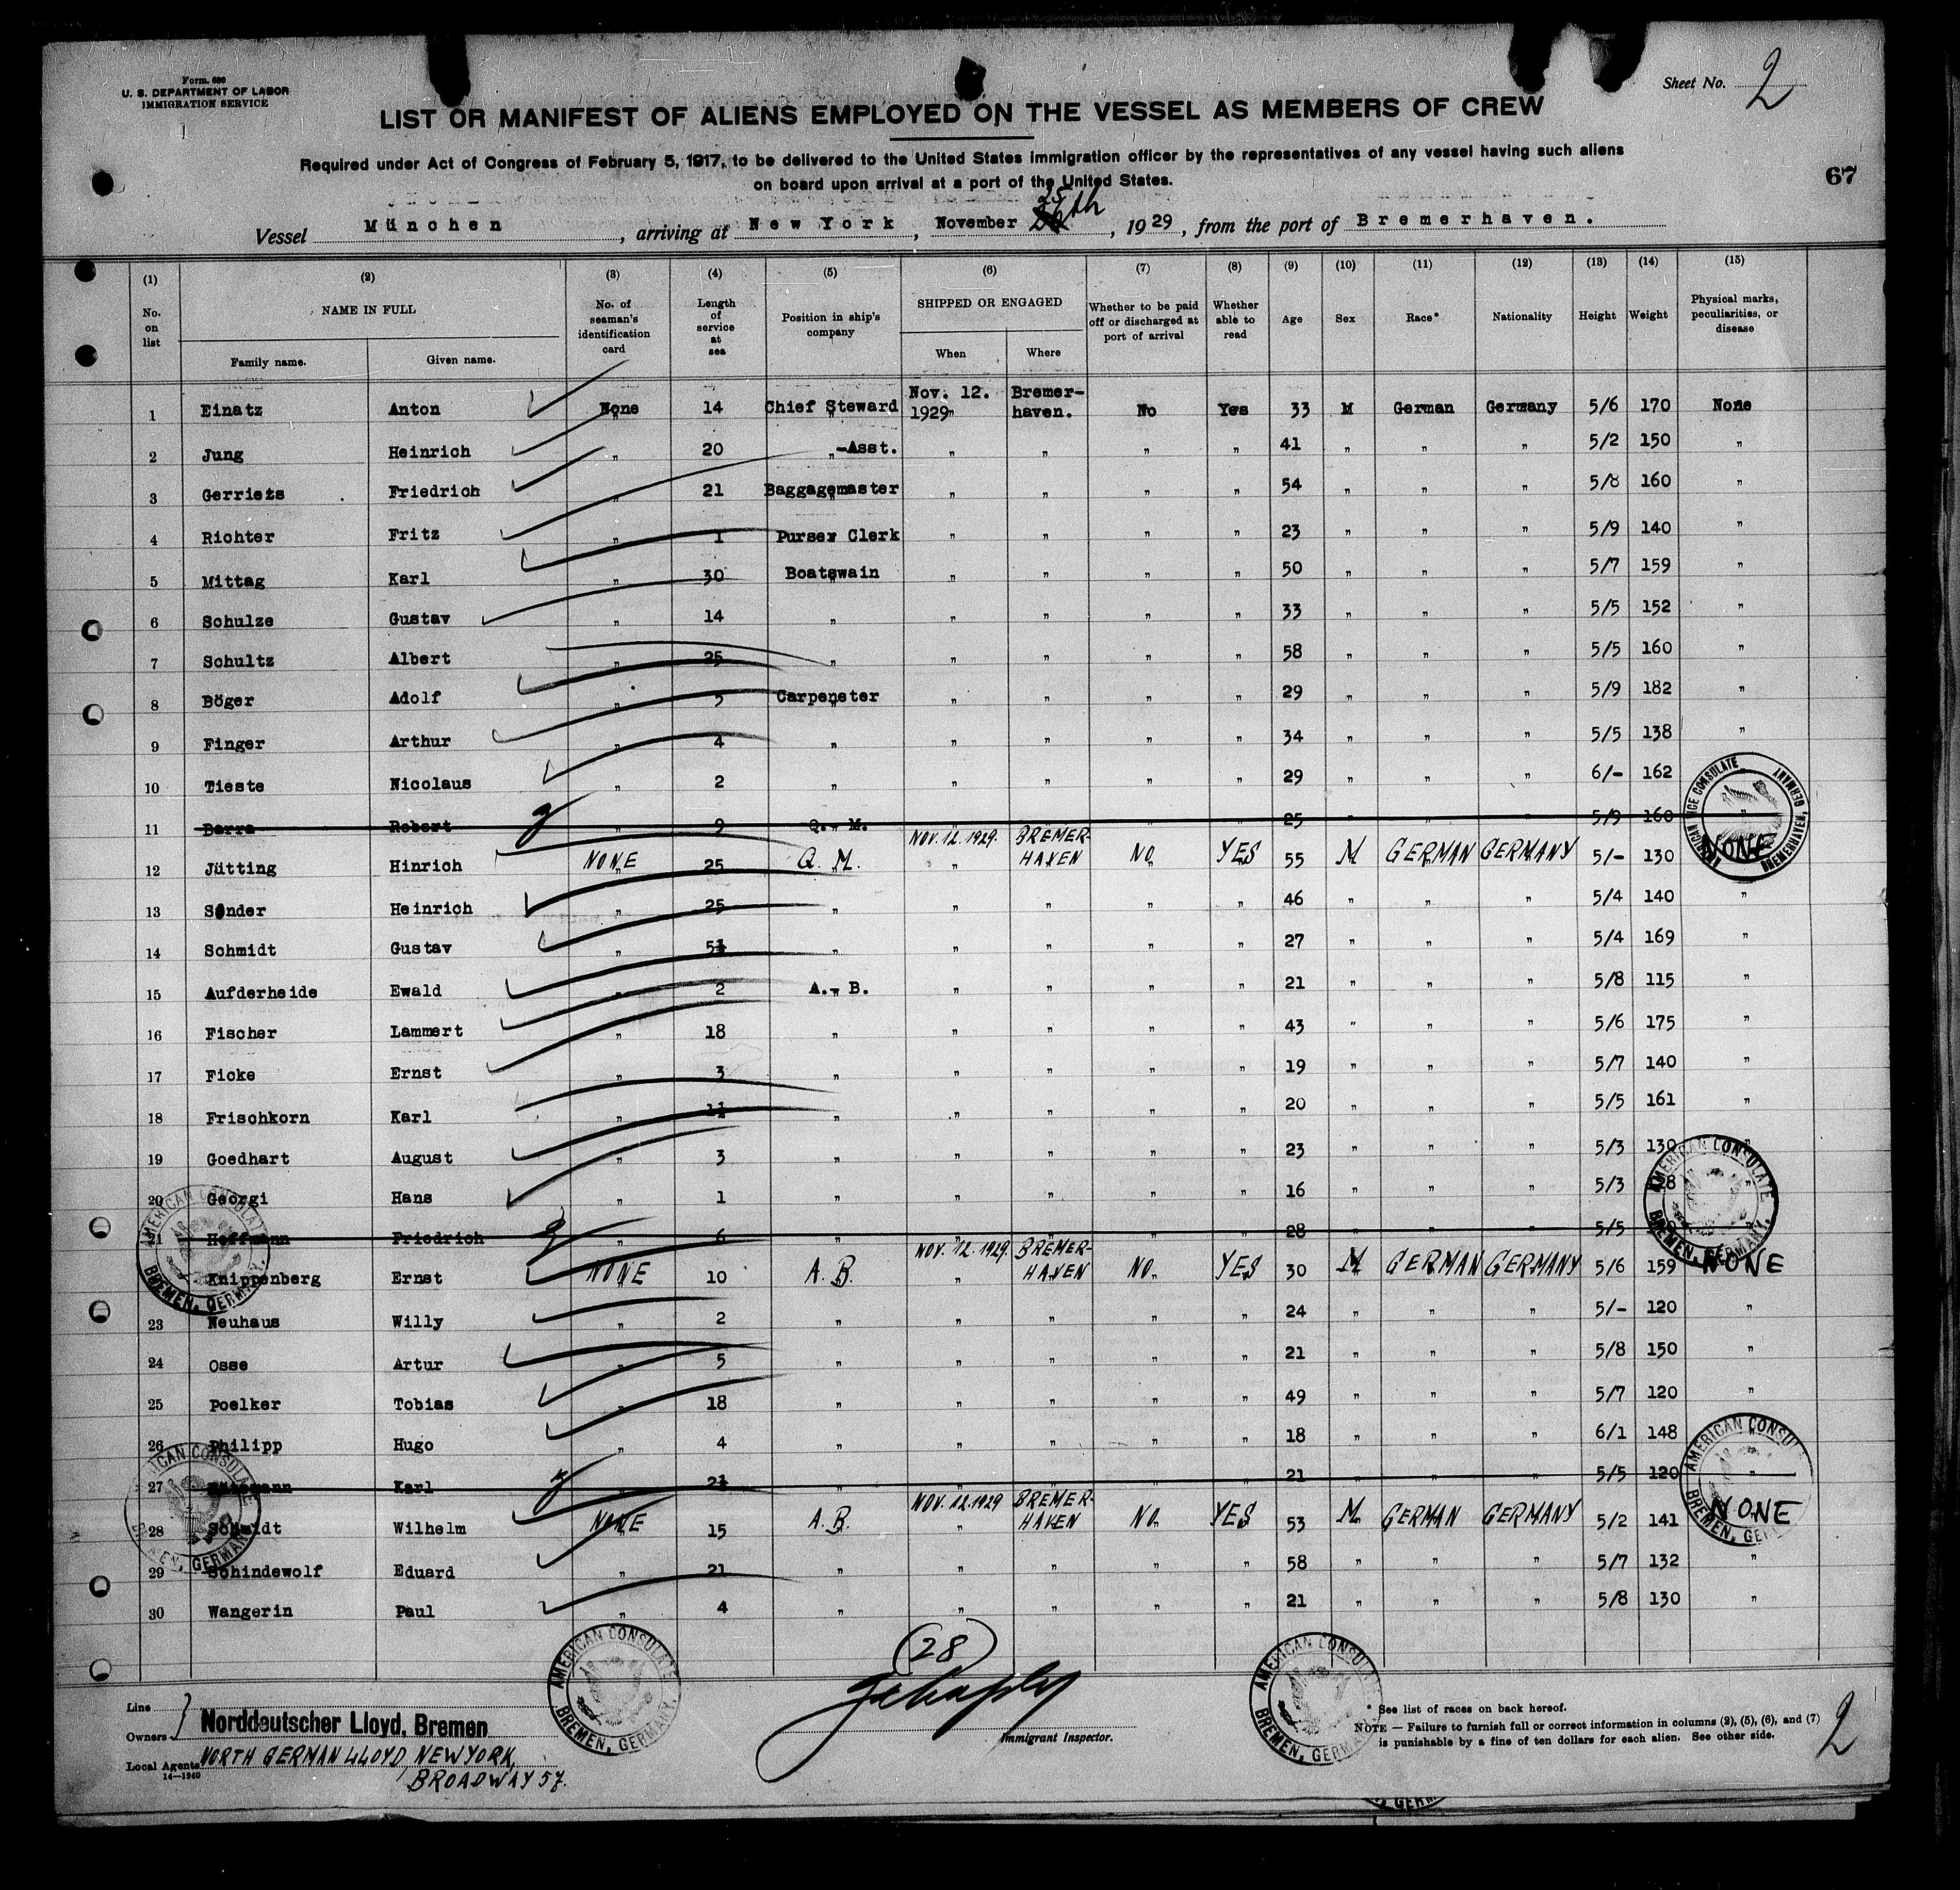 Form 680
U. S. DEPARTMENT OF LABOR
IMMIGRATION SERVICE
Sheet No. 2
LIST OR MANIFEST OF ALIENS EMPLOYED ON THE VESSEL AS MEMBERS OF CREW
Required under Act of Congress of February 5, 1917, to be delivered to the United States immigration officer by the representatives of any vessel having such aliens
on board upon arrival at a port of the United States.
67
Vessel München, arriving at New York, November 25th, 1929, from the port of Bremerhaven.
(1) (2) (3) (4) (5) (6) (7) (8) (9) (10) (11) (12) (13) (14) (15)
No. on list NAME IN FULL Family name. Given name. No. of seaman's identification card Length of service at sea Position in ship's company SHIPPED OR ENGAGED When Where Whether to be paid off or discharged at port of arrival Whether able to read Age Sex Race* Nationality Height Weight Physical marks, peculiarities, or disease
1 Einatz Anton None 14 Chief Steward Nov. 12. 1929 Bremer-haven. No Yes 33 M German Germany 5/6 170 None
2 Jung Heinrich " 20 "-Asst. " " " " 41 " " " 5/2 150 "
3 Gerriets Friedrich " 21 Baggagemaster " " " " 54 " " " 5/8 160 "
4 Richter Fritz " 1 Purser Clerk " " " " 23 " " " 5/9 140 "
5 Mittag Karl " 30 Boatswain " " " " 50 " " " 5/7 159 "
6 Schulze Gustav " 14 " " " " " 33 " " " 5/5 152 "
7 Schultz Albert " 25 " " " " " 58 " " " 5/5 160 "
8 Böger Adolf " 5 Carpeneter " " " " 29 " " " 5/9 182 "
9 Finger Arthur " 4 " " " " " 34 " " " 5/5 138 "
10 Tieste Nicolaus " 2 " " " " " 29 " " " 6/- 162 "
11 Barra Robert " 9 Q. M. " " " " 25 " " " 5/9 160 "
12 Jütting Hinrich NONE 25 Q. M. NOV. 12. 1929. BREMER-HAVEN NO YES 55 M GERMAN GERMANY 5/- 130 NONE
13 Sander Heinrich " 25 " " " " " 46 " " " 5/4 140 "
14 Schmidt Gustav " 5½ " " " " " 27 " " " 5/4 169 "
15 Aufderheide Ewald " 2 A. B. " " " " 21 " " " 5/8 115 "
16 Fischer Lammert " 18 " " " " " 43 " " " 5/6 175 "
17 Ficke Ernst " 3 " " " " " 19 " " " 5/7 140 "
18 Frischkorn Karl " 1½ " " " " " 20 " " " 5/5 161 "
19 Goedhart August " 3 " " " " " 23 " " " 5/3 130 "
20 Georgi Hans " 1 " " " " " 16 " " " 5/3 "
21 Hoffmann Friedrich " 6 " " " " " 28 " " " 5/5 "
Knippenberg Ernst NONE 10 A. B. NOV. 12. 1929. BREMER-HAVEN NO. YES 30 M GERMAN GERMANY 5/6 159 NONE
23 Neuhaus Willy " 2 " " " " " 24 " " " 5/- 120 "
24 Osse Artur " 5 " " " " " 21 " " " 5/8 150 "
25 Poelker Tobias " 18 " " " " " 49 " " " 5/7 120 "
26 Philipp Hugo " 4 " " " " " 18 " " " 6/1 148 "
27 Karl " 2½ " " " " " 21 " " " 5/5 120 "
28 Schmidt Wilhelm NONE 15 A. B. NOV. 12. 1929 BREMER-HAVEN NO. YES 53 M GERMAN GERMANY 5/2 141 NONE
29 Schindewolf Eduard " 21 " " " " " 58 " " " 5/7 132 "
30 Wangerin Paul " 4 " " " " " 21 " " " 5/8 130 "
AMERICAN VICE CONSULATE BREMERHAVEN, GERMANY
AMERICAN CONSULATE BREMEN, GERMANY.
AMERICAN CONSULATE BREMEN, GERMANY.
AMERICAN CONSULATE BREMEN, GERMANY.
AMERICAN CONSULATE BREMEN, GERMANY.
AMERICAN CONSULATE BREMEN, GERMANY.
AMERICAN CONSULATE BREMEN, GERMANY.
(28)
Immigrant Inspector.
Line
Owners } Norddeutscher Lloyd, Bremen
Local Agents NORTH GERMAN LLOYD, NEW YORK,
BROADWAY 57.
14—1240
* See list of races on back hereof.
NOTE — Failure to furnish full or correct information in columns (2), (5), (6), and (7)
is punishable by a fine of ten dollars for each alien. See other side.
2